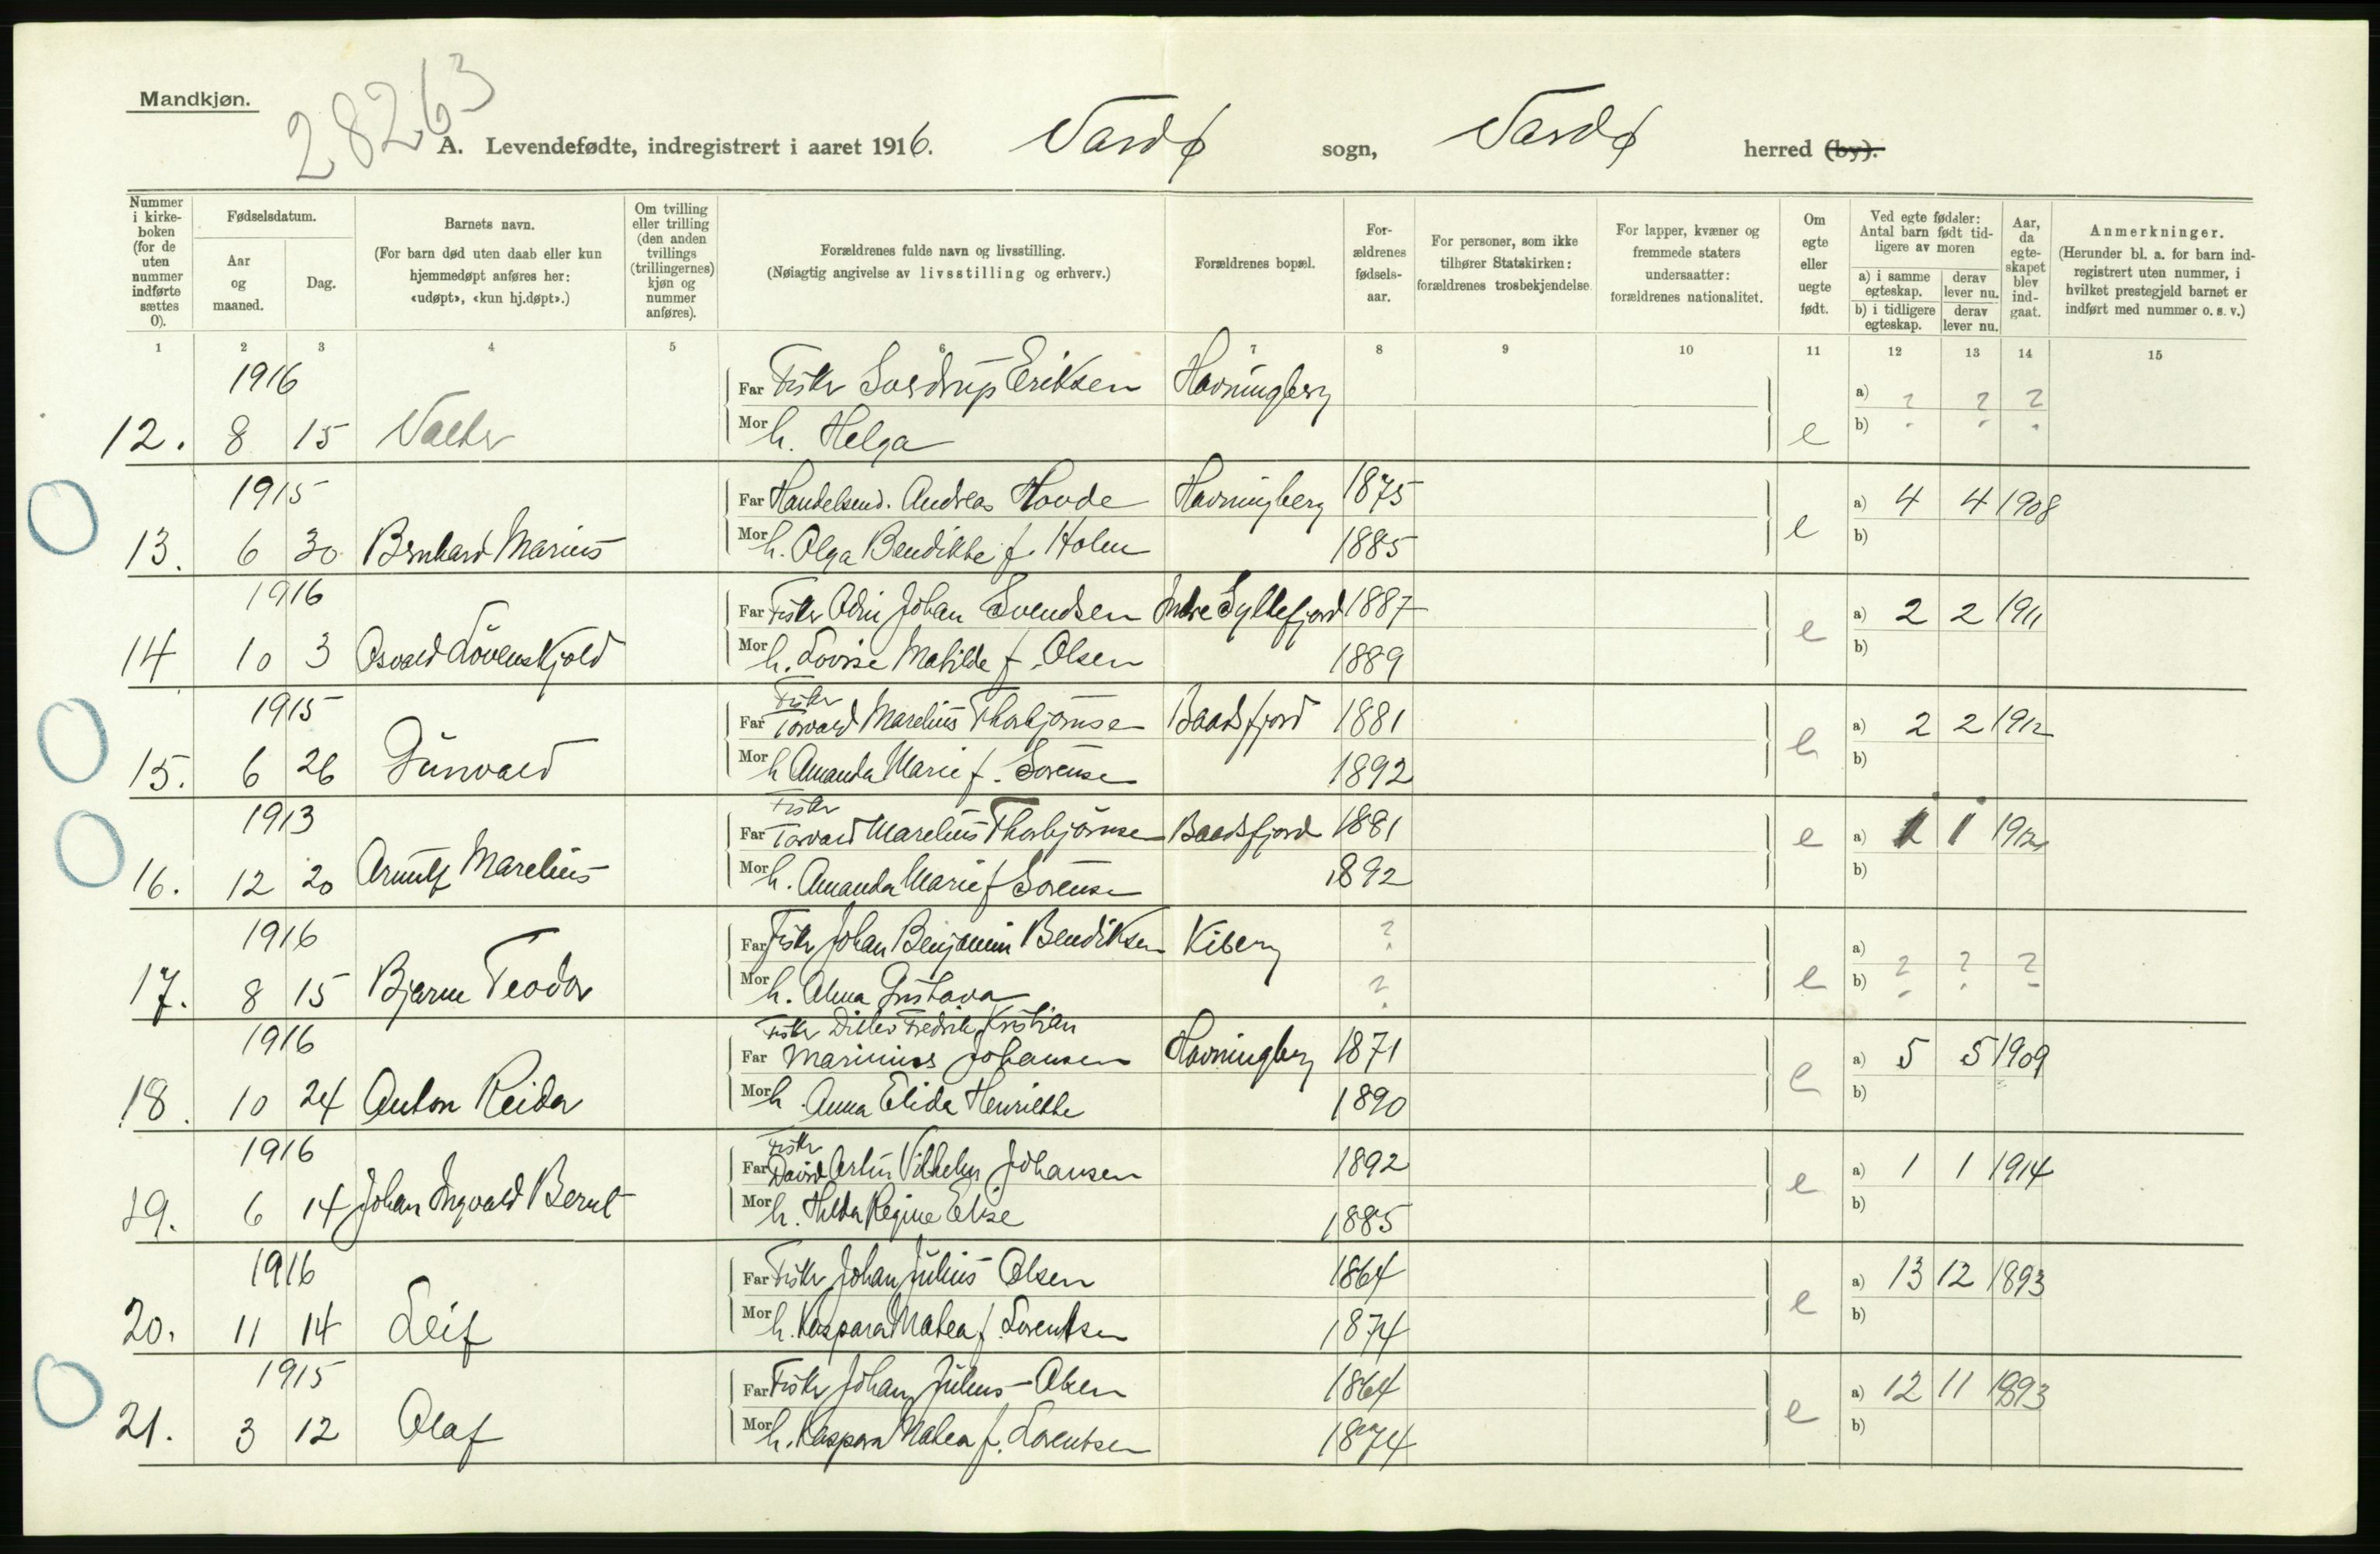 Mandkjøn.
28263
A. Levendefødte, indregistrert i aaret 1916. Vardø sogn, Vardø herred (by).
Nummer i kirkeboken (for de uten nummer indførte sættes 0).
Fødselsdatum.
Aar og maaned.
Dag.
Barnets navn.
(For barn død uten daab eller kun hjemmedøpt anføres her: «udøpt», «kun hj.døpt».)
Om tvilling eller trilling (den anden tvillings (trillingernes) kjøn og nummer anføres).
Forældrenes fulde navn og livsstilling.
(Nøiagtig angivelse av livsstilling og erhverv.)
Forældrenes bopæl.
Forældrenes fødselsaar.
For personer, som ikke tilhører Statskirken: forældrenes trosbekjendelse.
For lapper, kvæner og fremmede staters undersaatter: forældrenes nationalitet.
Om egte eller uegte født.
Ved egte fødsler: Antal barn født tidligere av moren
a) i samme egteskap. derav lever nu.
b) i tidligere egteskap. derav lever nu.
Aar, da egteskapet blev indgaat.
Anmerkninger.
(Herunder bl. a. for barn indregistrert uten nummer, i hvilket prestegjeld barnet er indført med nummer o. s. v.)
1 2 3 4 5 6 7 8 9 10 11 12 13 14 15
1916 Far Fisker Sverdrup Eriksen Havningberg a) ? ? ?
12. 8 15 Valter Mor h. Helga e b)
1915 Far Handelsmd. Andreas Hovde Havningberg 1875 a) 4 4 1908
13. 6 30 Bernhard Marius Mor h. Olga Bendikte f. Holm 1885 e b)
1916 Far Fisker Odin Johan Svendsen Indre Syltefjord 1887 a) 2 2 1911
14 10 3 Osvald Lövenskjold Mor h. Lovise Matilde f. Olsen 1889 e b)
1915 Fisker
Far Torvald Marelius Thorbjørnsen Baadsfjord 1881 a) 2 2 1912
15. 6 26 Gunvald Mor h Amanda Marie f. Sørensen 1892 e b)
1913 Fisker
Far Torvald Marelius Thorbjørnsen Baadsfjord 1881 e a) 1 1 1912
16. 12 20 Arnulf Marelius Mor h. Amanda Marie f Sørensen 1892 b)
1916 Far Fisker Johan Benjamin Bendiksen Kiberg ? a) ? ? ?
17. 8 15 Bjarne Teodor Mor h. Alma Gustava ? e b)
1916 Fisker Ditlev Fredrik Kristian
Far Marinius Johansen Havningberg 1871 a) 5 5 1909
18. 10 24 Anton Reidar Mor h. Anna Elida Henriette 1890 e b)
1916 Fisker
Far David Artur Vilhelm Johansen 1892 a) 1 1 1914
19. 6 14 Johan Ingvald Bernt Mor h. Hilda Regine Elise 1885 e b)
1916 Far Fisker Johan Julius Olsen 1864 a) 13 12 1893
20. 11 14 Leif Mor h. Kaspara Matea f. Lorentsen 1874 e b)
1915 Far Fisker Johan Julius Olsen 1864 a) 12 11 1893
21. 3 12 Olaf Mor h. Kaspara Matea f. Lorentsen 1874 e b)